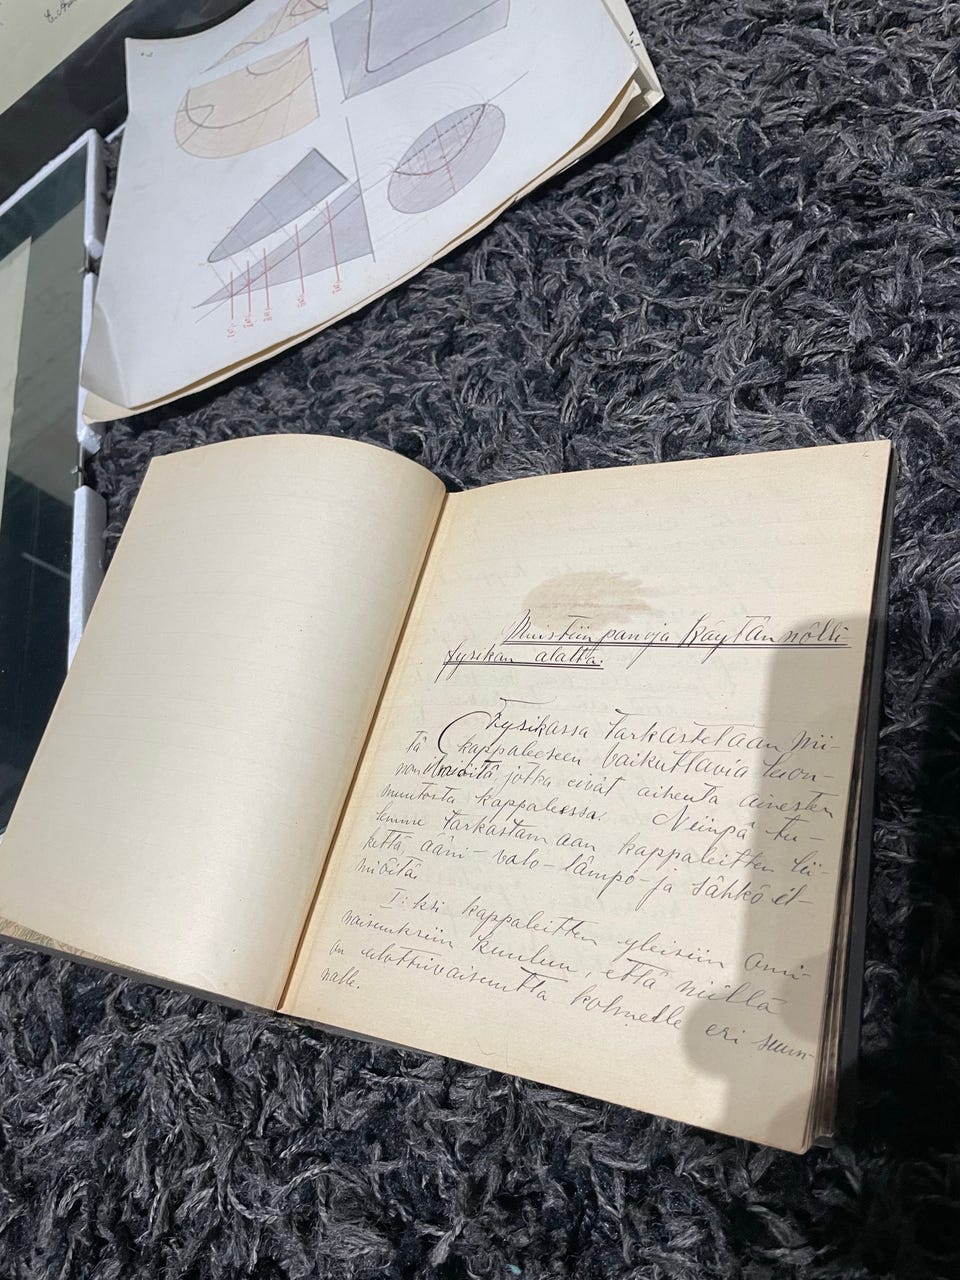 Muistiinpanoja käytännölli-
fysikan alalta.
Fysikassa tarkastetaan nii-
tä kappaleeseen vaikuttavia luon-
nonilmiöitä, jotka eivät aiheuta ainesten
muutosta kappaleessa. Niinpä tu-
lemme tarkastamaan kappaleitten lii-
kettä, ääni- valo- lämpö- ja sähköil-
miöitä.
I:ksi kappaleitten yleisiin omi-
naisuuksiin kuuluu, että niillä
on ulottuvaisuutta kolmelle eri suun-
nalle.